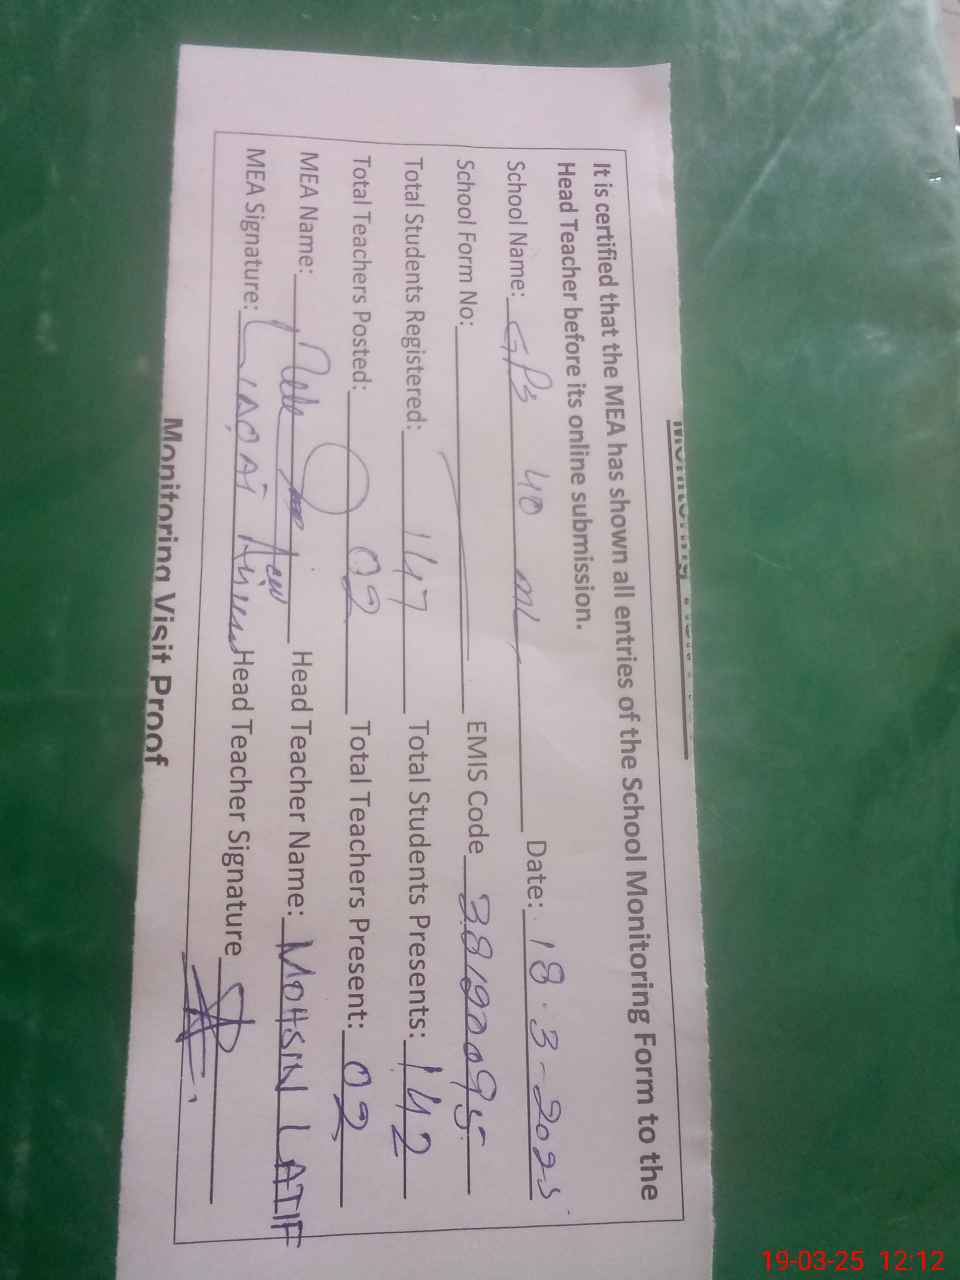 It is certified that the MEA has shown all entries of the School Monitoring Form to the
Head Teacher before its online submission.
School Name: GPS 40 ML Date: 18.3-2025
School Form No: EMIS Code 38190095
Total Students Registered: 147 Total Students Presents: 142
Total Teachers Posted: 02 Total Teachers Present: 02
MEA Name: Head Teacher Name: MOHSIN LATIF
MEA Signature: Head Teacher Signature
Monitoring Visit Proof
19-03-25 12:12